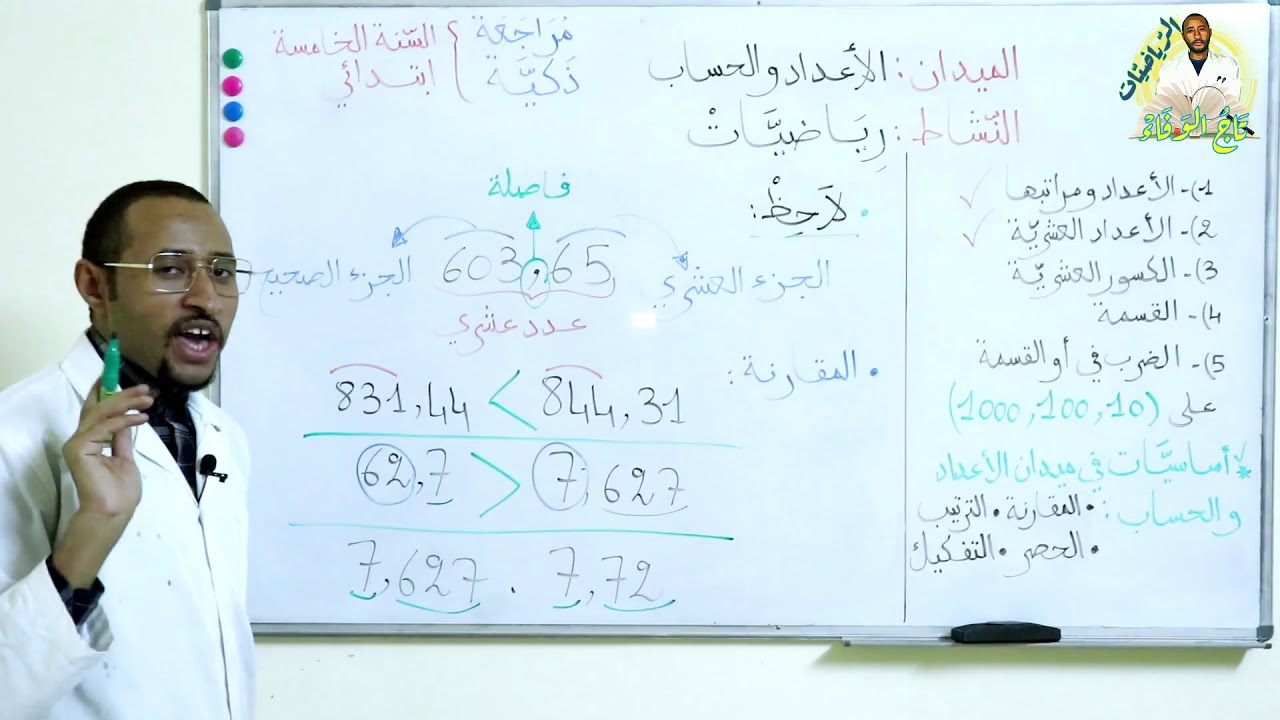 مُرَاجَعَة ذَكيَّة } السّنة الخامسة ابتدائي
الميدان: الأعداد والحساب
النّشاط: رِيَاضيَّاتْ
الرياضيّات
تَاجُ الوَفَاءْ
1)- الأعداد ومراتبها ✓
2)- الأعداد العشريّة ✓
3)- الكسور العشريّة
4)- القسمة
5)- الضرب في أو القسمة
على (10, 100, 1000)
* أساسيَّات في ميدان الأعداد
والحساب: • المقارنة • الترتيب
• الحصر • التفكيك
• لاَحِظْ:
فاصلة
الجزء الصحيح 603,65 الجزء العشري
عدد عشري
• المقارنة:
831,44 < 844,31
62,7 > 7,627
7,627 . 7,72